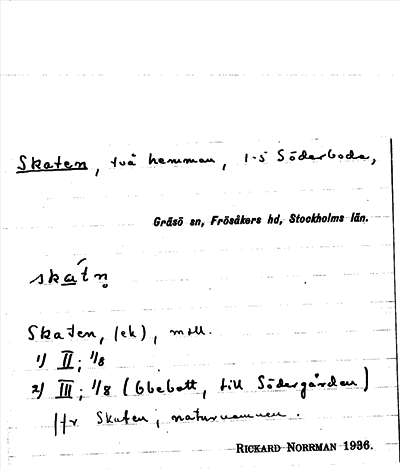 Skaten, två hemman, 1-5 Söderboda,
Gräsö sn, Frösåkers hd, Stockholms län.
skatn̥
Skaten, (ek), mtl.
1) II; 1/8
2) III; 1/8 (Obebott, till Södergården)
Jfr Skaten, naturnamnen.
RICKARD NORRMAN 1936.